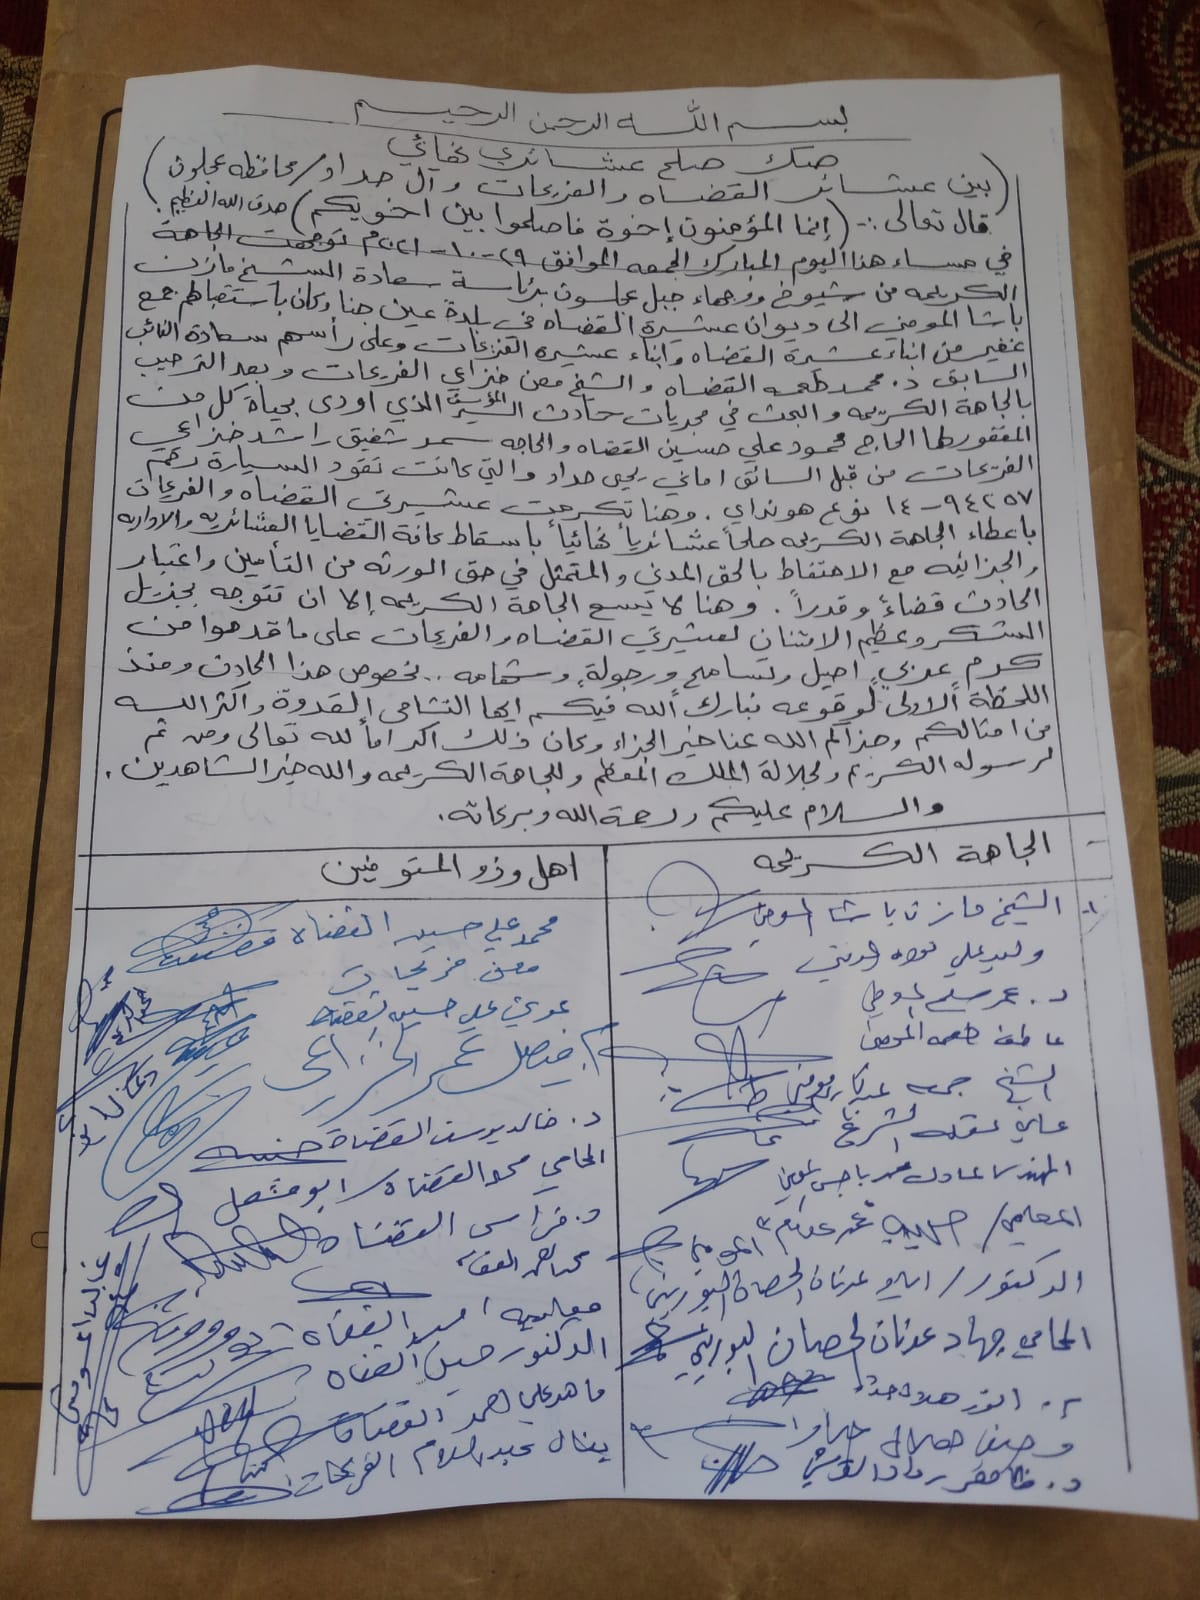 بسم الله الرحمن الرحيم
صك صلح عشائري نهائي
(بين عشائر القضاه والفريحات وآل حداد/محافظه عجلون)
قال تعالى :- (إنما المؤمنون إخوة فاصلحوا بين اخويكم) صدق الله العظيم.
في مساء هذا اليوم المبارك الجمعه الموافق ٢٩-١٠-٢٠٢١م توجهت الجاهة
الكريمه من شيوخ ووجهاء جبل عجلون برئاسة سعادة الشيخ مازن
باشا المومني الى ديوان عشيرة القضاه في بلدة عين جنا وكان باستقبالهم جمع
غفير من ابناء عشيرة القضاه وابناء عشيرة الفريحات وعلى رأسهم سعادة النائب
السابق د. محمد طعمه القضاه والشيخ معن خزاعي الفريحات وبعد الترحيب
بالجاهة الكريمه والبحث في مجريات حادث السير المؤسف الذي اودى بحياة كل من
المغفور لهما الحاج محمود علي حسين القضاه والحاجه سمر شفيق راشد خزاعي
الفريحات من قبل السائق اماني يحيى حداد والتي كانت تقود السيارة رقم
٩٤٢٥٧-١٤ نوع هونداي. وهنا تكرمت عشيرتي القضاه والفريحات
باعطاء الجاهة الكريمه صلحاً عشائرياً نهائياً باسقاط كافة القضايا العشائريه والاداريه
والجزائيه مع الاحتفاظ بالحق المدني والمتمثل في حق الورثه من التأمين واعتبار
الحادث قضاءً وقدراً. وهنا لا يسع الجاهة الكريمه إلا ان تتوجه بجزيل
الشكر وعظيم الامتنان لعشيرتي القضاه والفريحات على ما قدموا من
كرم عربي اصيل وتسامح ورجولةٍ وشهامه.. بخصوص هذا الحادث ومنذ
اللحظة الأولى لوقوعه فبارك الله فيكم ايها النشامى القدوة واكثر الله
من امثالكم وجزاكم الله عنا خير الجزاء وكان ذلك اكراماً لله تعالى ومن ثم
لرسوله الكريم ولجلالة الملك المعظم وللجاهة الكريمه والله خير الشاهدين.
والسلام عليكم ورحمة الله وبركاته.
الجاهة الكريمه
١- الشيخ مازن باشا المومني
وليد علي
د. عمر سليم المومني
عاطف طعمه المومني
الشيخ جمعه
علي عقله
المهندس عادل محمد المومني
المحامي/ المومني
الدكتور/ عدنان الحصان البوريني
المحامي جهاد عدنان الحصان البوريني
وصفي حداد
د.
اهل وذوو المتوفين
محمد علي حسين القضاه
معن فريحات
عدي علي حسين القضاه
م. فيصل عمر الخزاعي
د. خالد يوسف القضاة
المحامي محمد القضاه/ابو مشعل
د. فراس القضاه
محمد احمد القضاه
معاويه احمد القضاه
الدكتور حسين القضاه
ماهر علي احمد القضاة
ينال عبدالسلام الفريحات